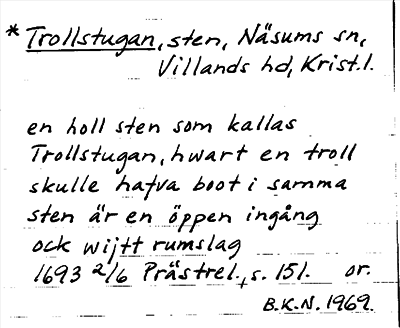 * Trollstugan, sten, Näsums sn,
Villands hd, Krist.l.
en holl sten som kallas
Trollstugan, hwart en troll
skulle hafva boot i samma
sten är en öppen ingång
ock wijtt rumslag
1693 2/6 Prästrel., s. 151. or.
B.K.N. 1969.